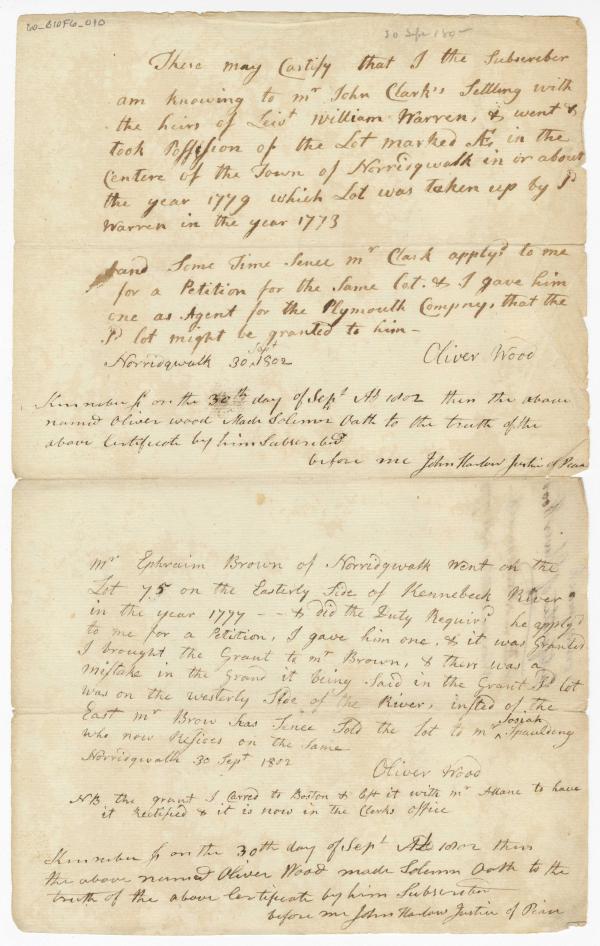 60_610F6_010
30 Sept 1802
These may Certify that I the Subscriber
am knowing to mr John Clark's Settling with
the heirs of Leivt William Warren, & went &
took Possession of the Lot marked in the
Centere of the Town of Norridgwalk in or about
the year 1779 which Lot was taken up by sd
Warren in the year 1773
and Some Time Sence mr Clark applyd to me
for a Petition for the Same lot. & I gave him
one as Agent for the Plymouth Compney, that the
sd lot might be granted to him –
Norridgwalk 30 Sept 1802 Oliver Wood
Kennebec ss on the 30th day of Sept AD 1802 then the above
named Oliver wood Made Solemn Oath to the truth of the
above Certificate by him Subscribed
before me John Harlow Justice of Peace
mr Ephraim Brown of Norridgwalk went on the
Lot 75 on the Easterly Side of Kennebeck River
in the year 1777 -- & did the Duty Requird he applyd
to me for a Petition, I gave him one, & it was Granted
I brought the Grant to mr Brown, & there was a
mistake in the Grand it being Said in the Grant sd lot
was on the westerly Side of the River, insted of the
East mr Brow has Sence Sold the lot to mr Josiah Spaulding
who now Resides on the Same
Norridgwalk 30 Sept 1802
Oliver Wood
NB the grant I Carred to Boston & left it with mr Allane to have
it Rectified & it is now in the Clerks office
Kennebec ss on the 30th day of Sept AD 1802 then
the above named Oliver Wood made Solemn Oath to the
truth of the above Certificate by him Subscribed
before me John Harlow Justice of Peace